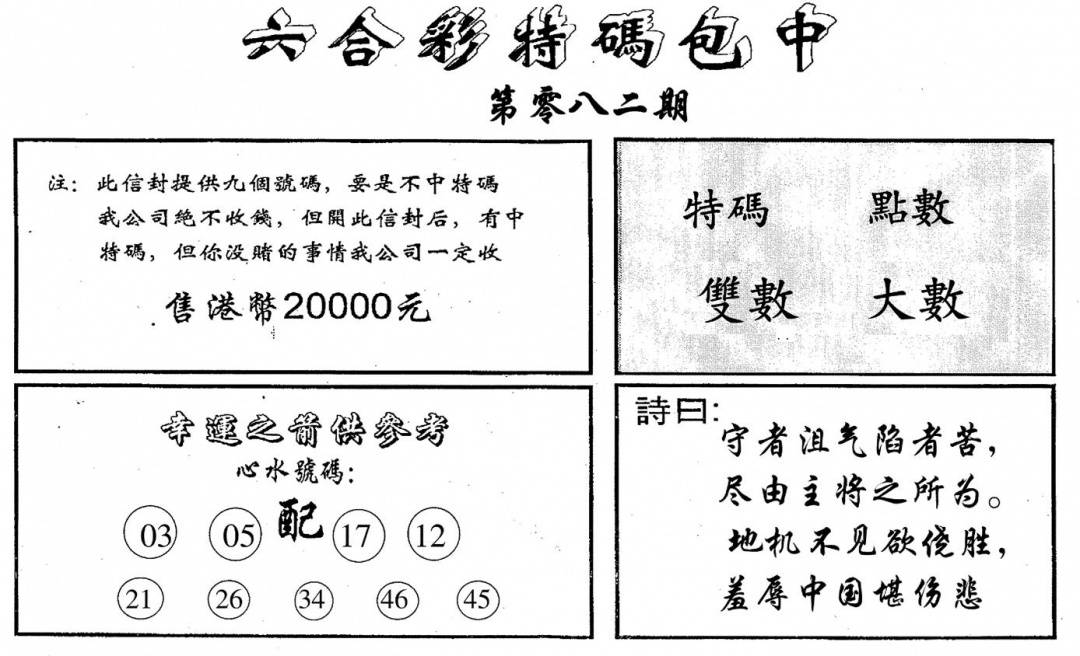 六合彩特碼包中
第零八二期
注：此信封提供九個號碼，要是不中特碼
我公司絕不收錢，但開此信封后，有中
特碼，但你没賭的事情我公司一定收
售港幣20000元
特碼 點數
雙數 大數
幸運之箭供參考
心水號碼：
03 05 配 17 12
21 26 34 46 45
詩曰：
守者沮气陷者苦，
尽由主将之所为。
地机不见欲侥胜，
羞辱中国堪伤悲